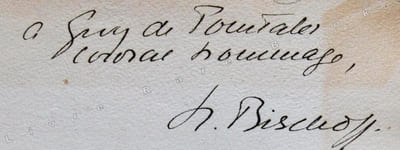 à Guy de Pourtalès
cordial hommage,
H. Bischoff.